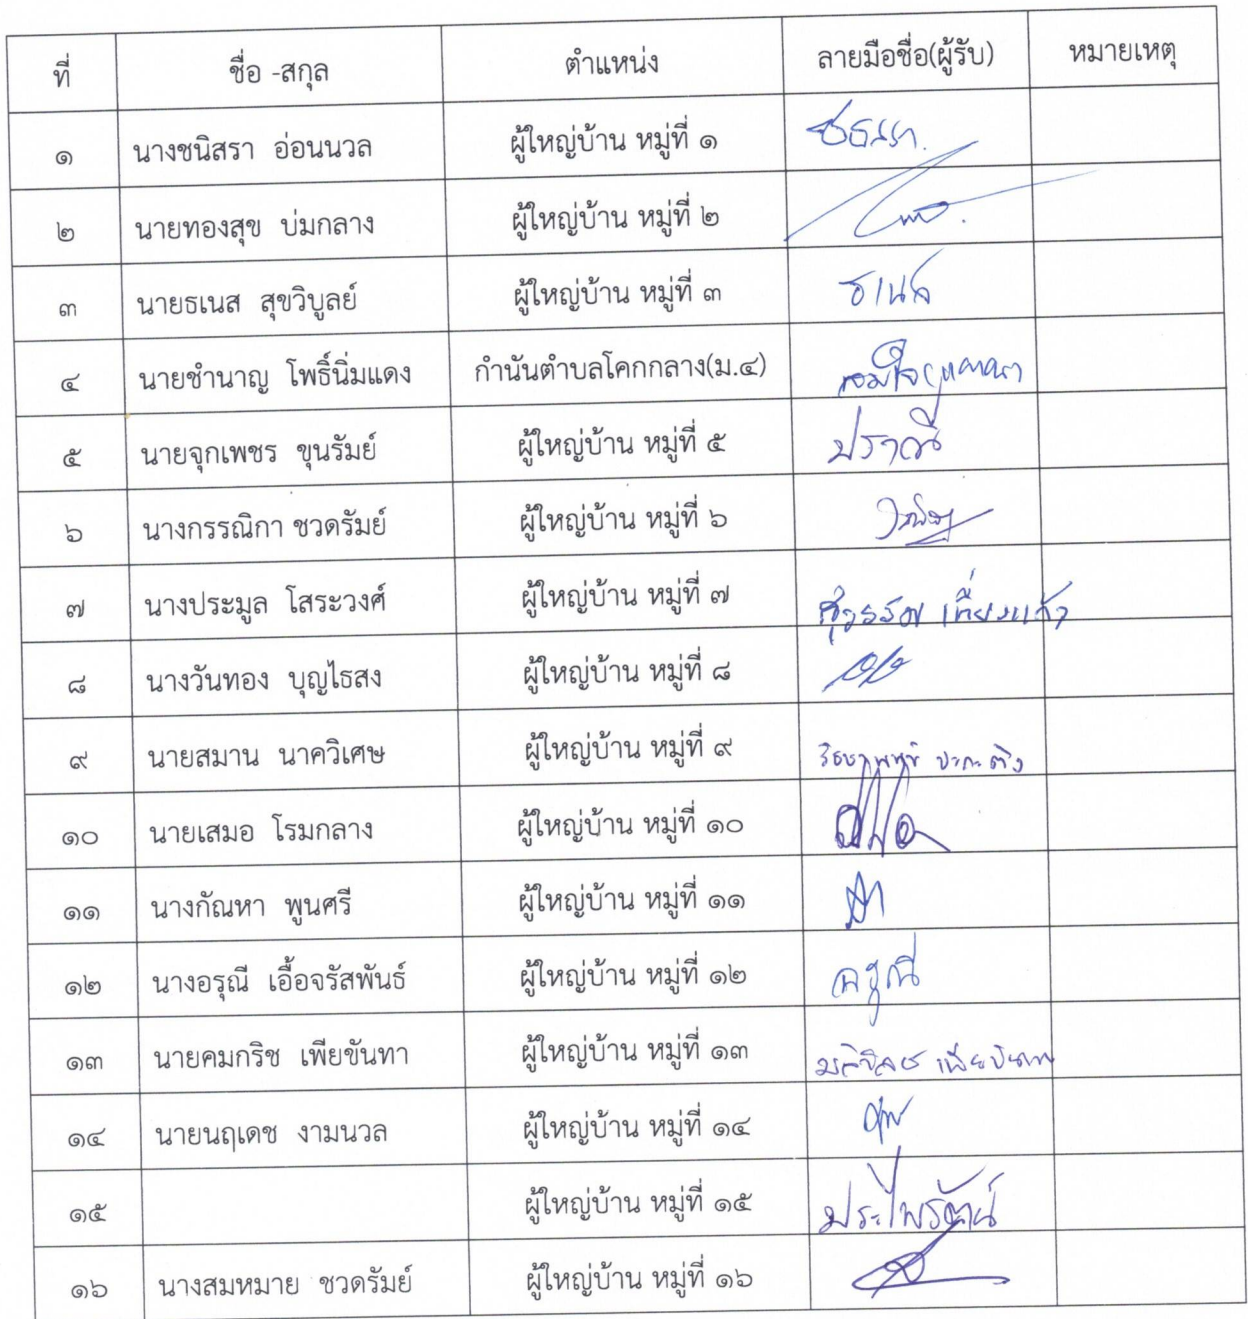 ที่ ชื่อ -สกุล ตำแหน่ง ลายมือชื่อ(ผู้รับ) หมายเหตุ
๑ นางชนิสรา อ่อนนวล ผู้ใหญ่บ้าน หมู่ที่ ๑
๒ นายทองสุข บ่มกลาง ผู้ใหญ่บ้าน หมู่ที่ ๒
๓ นายธเนส สุขวิบูลย์ ผู้ใหญ่บ้าน หมู่ที่ ๓ ธเนส
๔ นายชำนาญ โพธิ์นิ่มแดง กำนันตำบลโคกกลาง(ม.๔)
๕ นายจุกเพชร ขุนรัมย์ ผู้ใหญ่บ้าน หมู่ที่ ๕ ปราณี
๖ นางกรรณิกา ชวดรัมย์ ผู้ใหญ่บ้าน หมู่ที่ ๖
๗ นางประมูล โสระวงศ์ ผู้ใหญ่บ้าน หมู่ที่ ๗
๘ นางวันทอง บุญไธสง ผู้ใหญ่บ้าน หมู่ที่ ๘
๙ นายสมาน นาควิเศษ ผู้ใหญ่บ้าน หมู่ที่ ๙
๑๐ นายเสมอ โรมกลาง ผู้ใหญ่บ้าน หมู่ที่ ๑๐
๑๑ นางกัณหา พูนศรี ผู้ใหญ่บ้าน หมู่ที่ ๑๑
๑๒ นางอรุณี เอื้อจรัสพันธ์ ผู้ใหญ่บ้าน หมู่ที่ ๑๒ อรุณี
๑๓ นายคมกริช เพียขันทา ผู้ใหญ่บ้าน หมู่ที่ ๑๓
๑๔ นายนฤเดช งามนวล ผู้ใหญ่บ้าน หมู่ที่ ๑๔
๑๕ ผู้ใหญ่บ้าน หมู่ที่ ๑๕ ประไพรัตน์
๑๖ นางสมหมาย ชวดรัมย์ ผู้ใหญ่บ้าน หมู่ที่ ๑๖